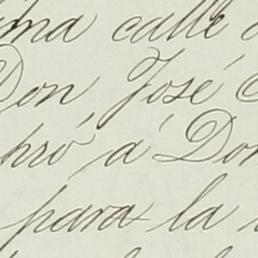 ma calle
Don, José
pró á Don
para la